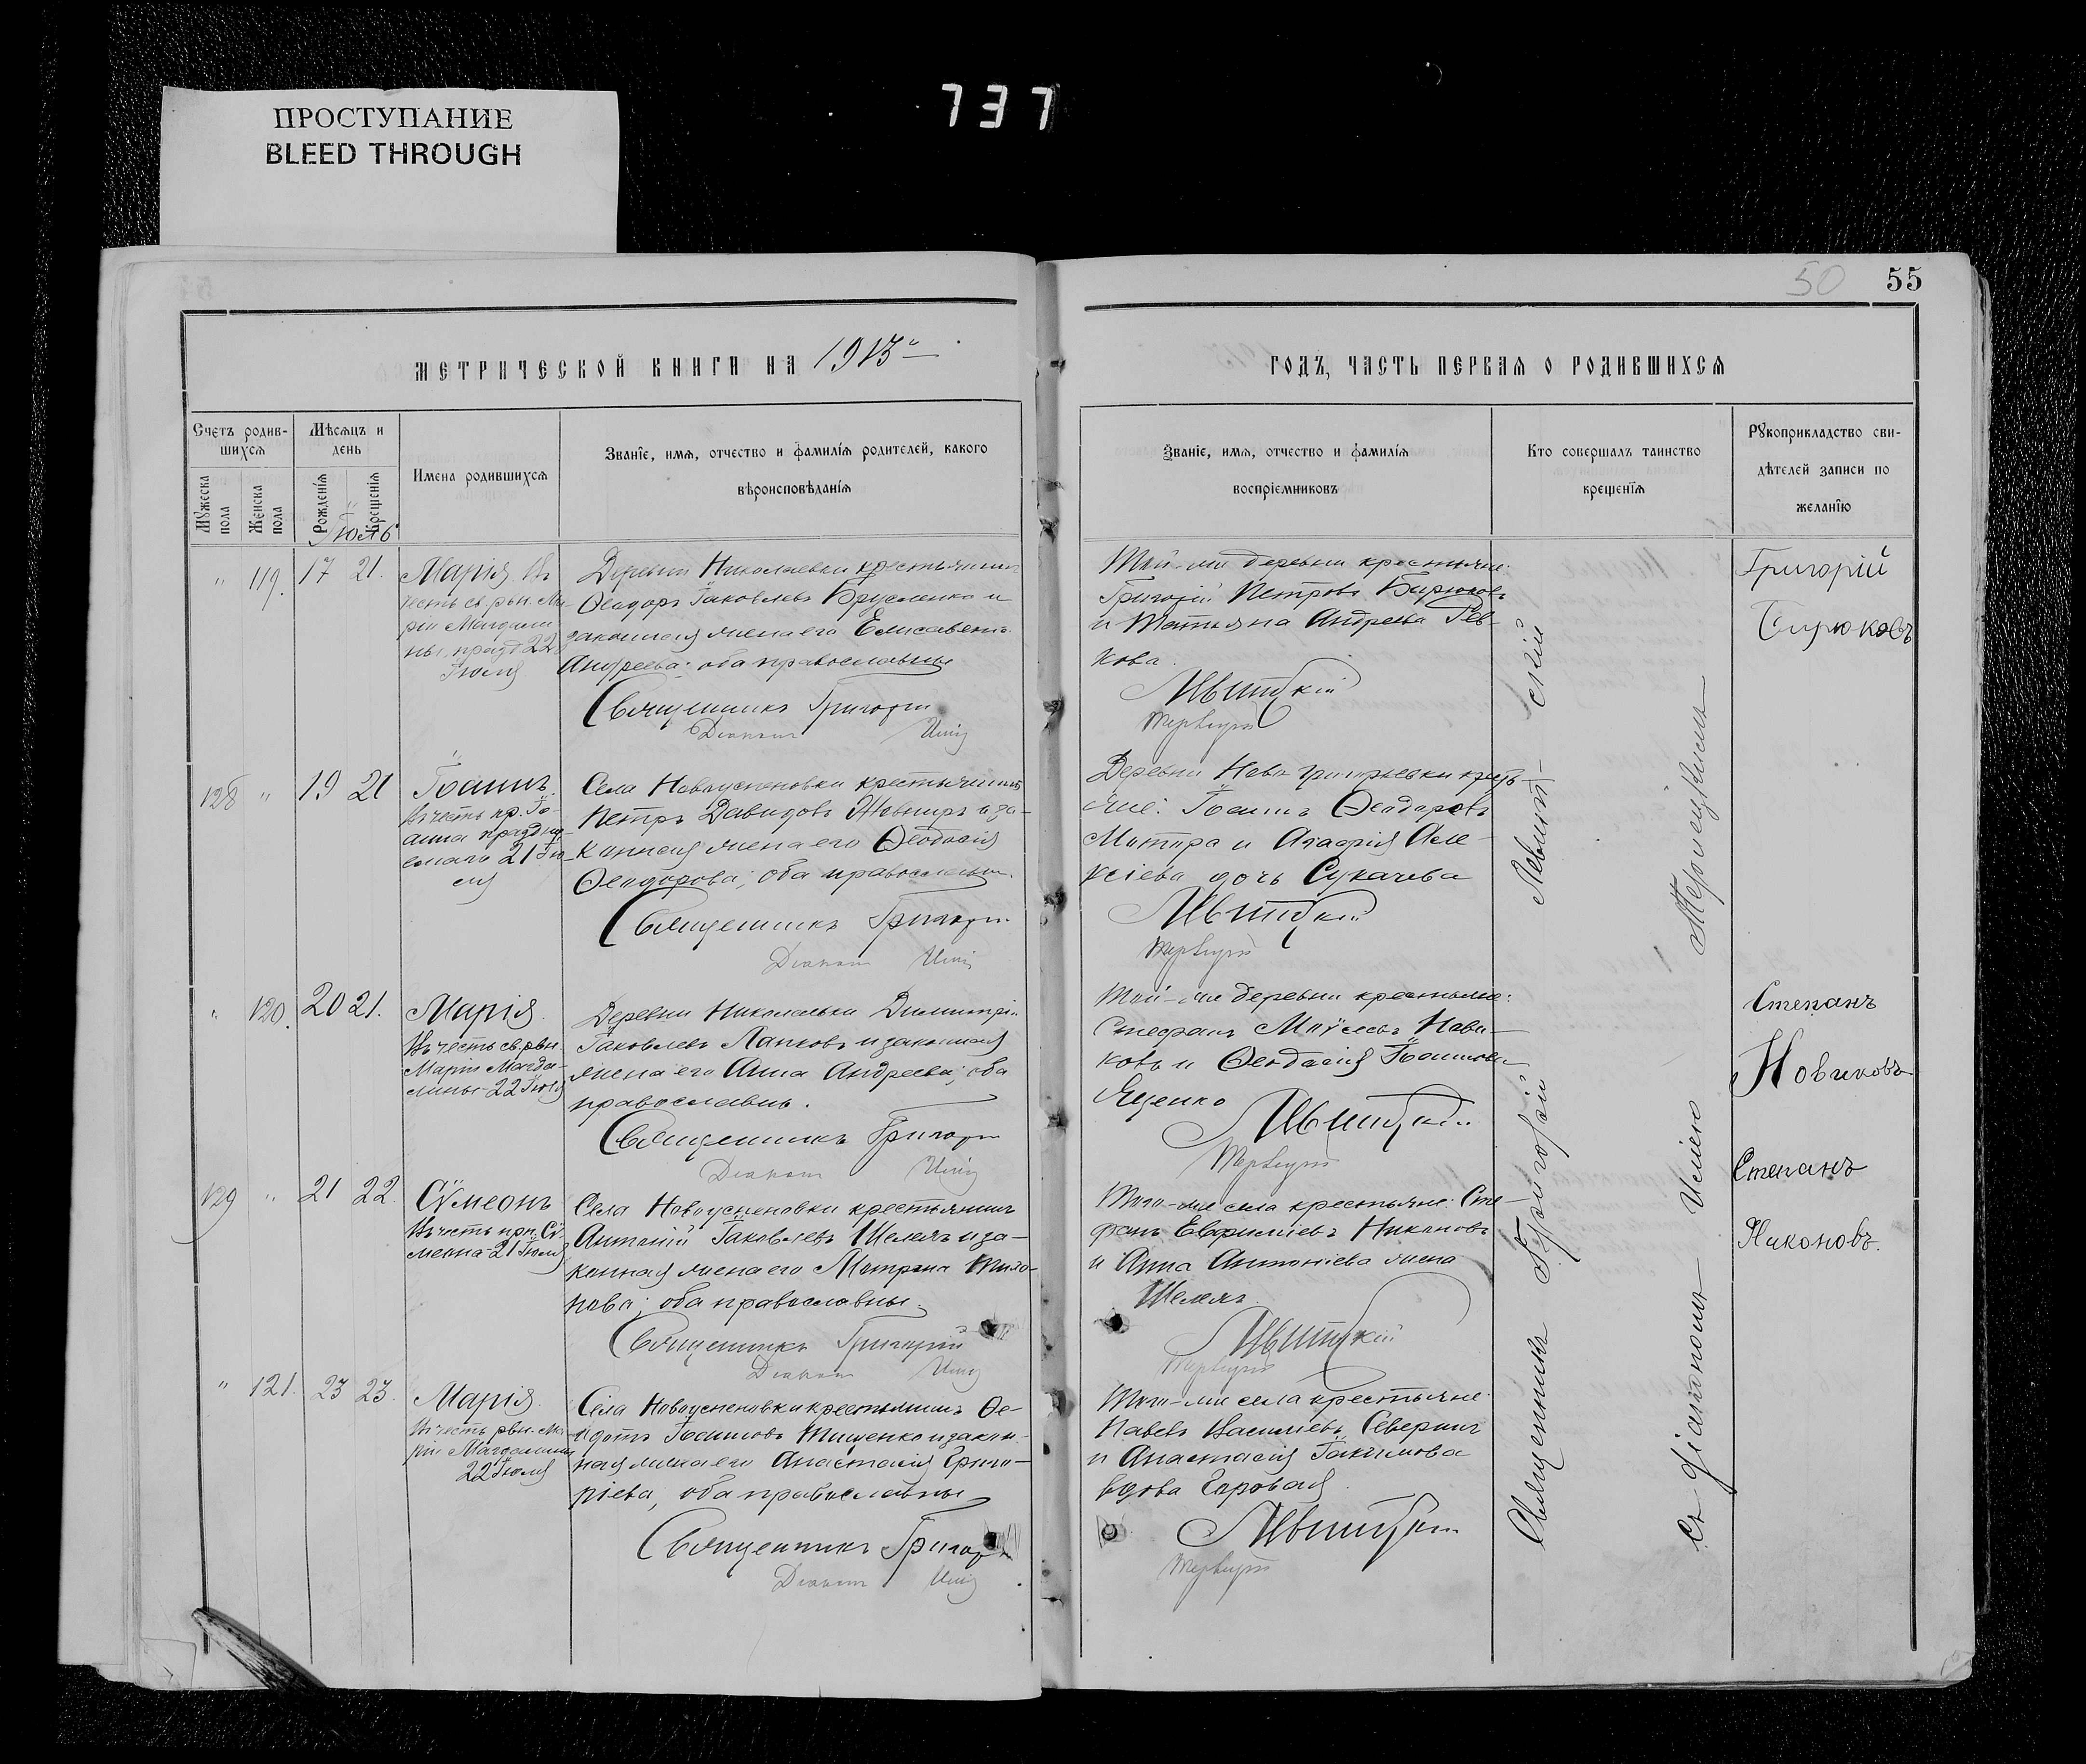 737
ПРОСТУПАНИЕ
BLEED THROUGH
50 55
МЕТРИЧЕСКОЙ КНИГИ НА 1913
ГОДЪ, ЧАСТЬ ПЕРВАЯ О РОДИВШИХСЯ
Счетъ родив-
шихся
Мужеска
пола
Женска
пола
Мѣсяцъ и
день
Рожденія
Крещенія
Имена родившихся
Званіе, имя, отчество и фамилія родителей, какого
вѣроисповѣданія
Званіе, имя, отчество и фамилія
воспріемниковъ
Кто совершалъ таинство
крещенія
Рукоприкладство сви-
дѣтелей записи по
желанію
Іюль
" 119. 17 21.
Марія. Въ
честь св. рвн. Ма-
ріи Магдали
ны, празд. 22
Іюля
Деревни Николаевки крестьянинъ
Ѳеодоръ Іаковлевъ Брусленко и
законная жена его Елисавета
Андреева; оба православны
Священникъ Григорій
Діаконъ
Той-же деревни крестьяне:
Григорій Петровъ Бирюковъ
и Татьяна Андреева Рев-
кова.
Левитскій
Григорій
Бирюковъ
128 " 19 21
Іоаннъ.
Въ честь пр. Іо-
анна праздну-
емаго 21 Ію-
ля
Села Новоуспеновки крестьянинъ
Петръ Давидовъ Жовниръ и за-
конная жена его Ѳеодосія
Ѳеодорова; оба православны.
Священникъ Григорій
Діаконъ
Деревни Ново Григорьевки кресть-
яне: Іоаннъ Ѳеодоровъ
и Агафія Але-
ксіева дочь Сукачева
Левитскій
" 120. 20 21.
Марія.
Въ честь св. рвн.
Маріи Магда-
лины 22 Іюля
Деревни Николаевки Димитрій
Іаковлевъ Лапковъ и законная
жена его Анна Андреева; оба
православны.
Священникъ Григорій
Діаконъ
Той-же деревни крестьяне:
Стефанъ Моѵсеевъ Нови-
ковъ и Ѳеодосія Іоаннова
Яценко
Левитскій
Степанъ
Новиковъ
129 " 21 22.
Сѵмеонъ
Въ честь прп. Сѵ-
меона 21 Іюля
Села Новоуспеновки крестьянинъ
Антоній Іаковлевъ Шелегъ и за-
конная жена его Матрона Тихо-
нова; оба православны.
Священникъ Григорій
Діаконъ
Того-же села крестьяне: Сте-
фанъ Евфиміевъ Никоновъ
и Анна Антоніева жена
Шелегъ.
Левитскій
Степанъ
Никоновъ.
" 121. 23 23.
Марія.
Въ честь рвн. Ма-
ріи Магдалины
22 Іюля
Села Новоуспеновки крестьянинъ Ѳе-
одотъ Іоанновъ Тищенко и закон-
ная жена его Анастасія Григо-
ріева, оба православны
Священникъ Григорій
Діаконъ
Того-же села крестьяне
Павелъ Василіевъ Северинъ
и Анастасія Іакимова
вдова
Левитскій
Священникъ Григорій Левитскій
Съ діакономъ